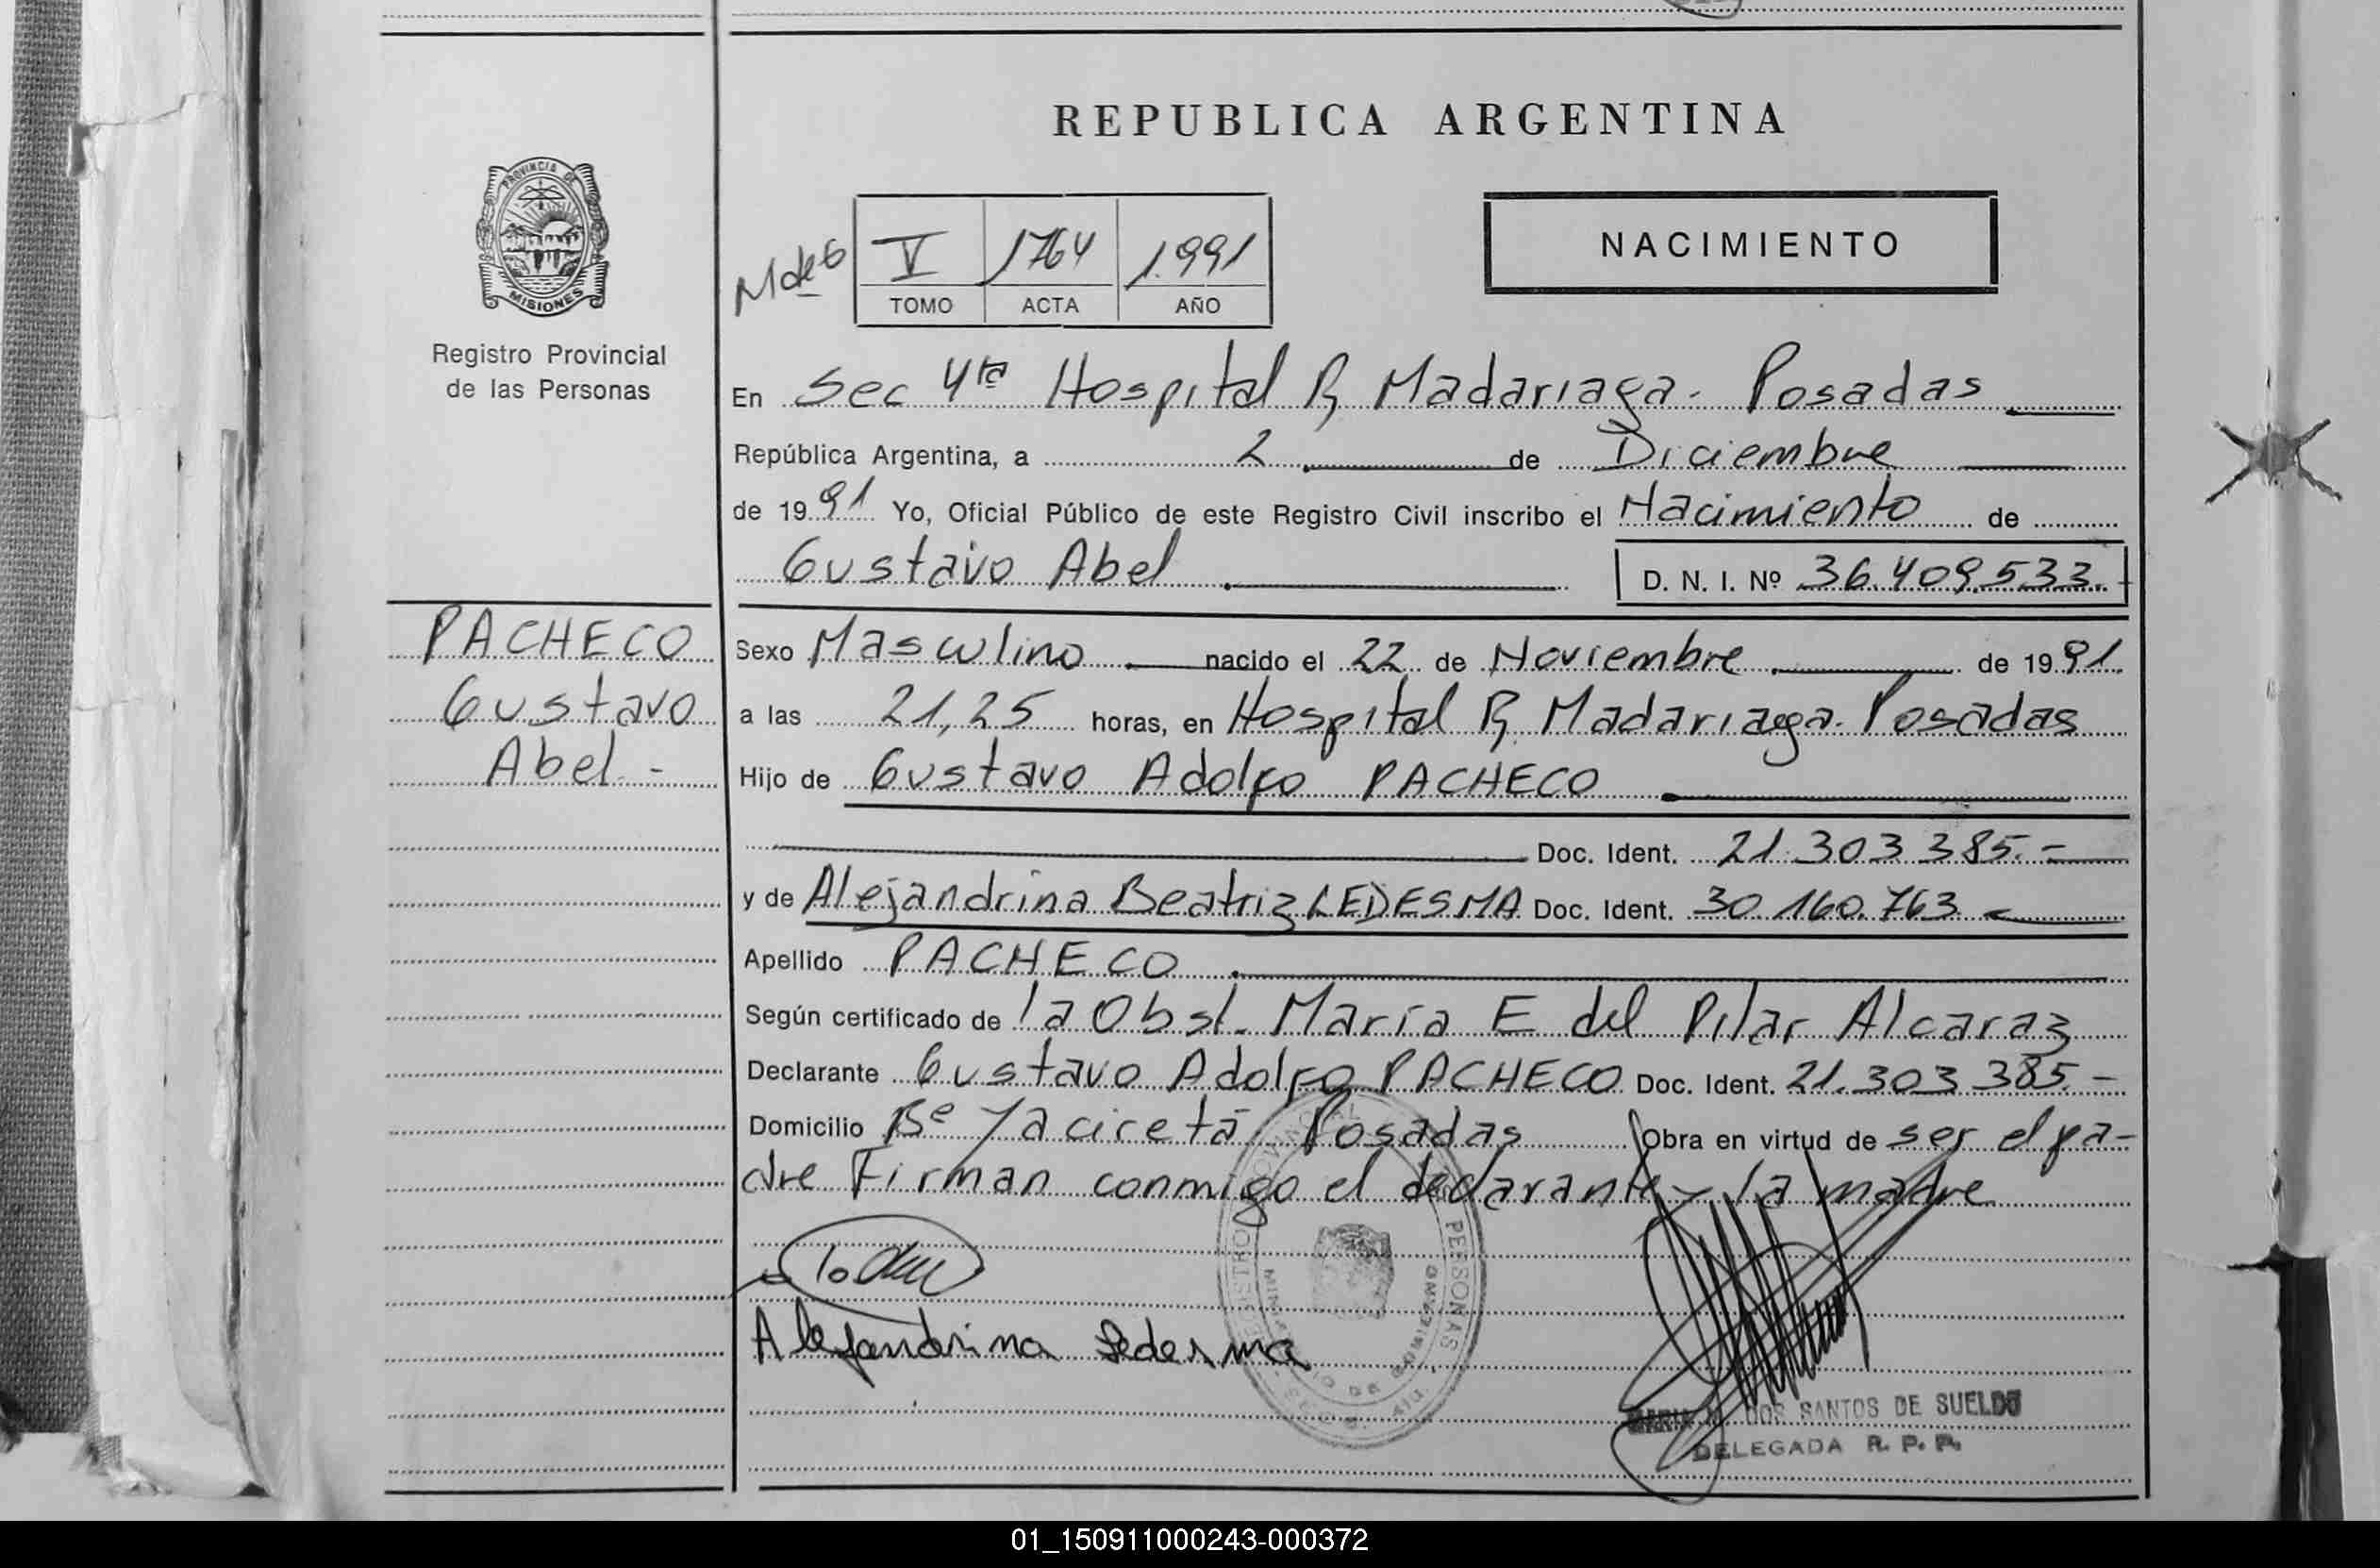 REPUBLICA ARGENTINA
PROVINCIA DE
MISIONES
Registro Provincial
de las Personas
V 1764 1.991
TOMO ACTA AÑO
NACIMIENTO
En Sec 4ta Hospital R. Madariaga - Posadas
República Argentina, a 2 de Diciembre
de 1991 Yo, Oficial Público de este Registro Civil inscribo el Nacimiento de
Gustavo Abel D. N. I. Nº 36.409.533.-
PACHECO
Gustavo
Abel.-
Sexo Masculino nacido el 22 de Noviembre de 1991.
a las 21,25 horas, en Hospital R. Madariaga. Posadas
Hijo de Gustavo Adolfo PACHECO
Doc. Ident. 21.303.385.-
y de Alejandrina Beatriz LEDESMA Doc. Ident. 30.160.763.-
Apellido PACHECO
Según certificado de la Obst. María E del Pilar Alcaraz
Declarante Gustavo Adolfo PACHECO Doc. Ident. 21.303.385.-
Domicilio Bº Yaciretá Posadas Obra en virtud de ser el pa-
dre Firman conmigo el declarante y la madre
Alejandrina Ledesma
MARIA DOS SANTOS DE SUELDO
DELEGADA R. P. P.
01_150911000243-000372